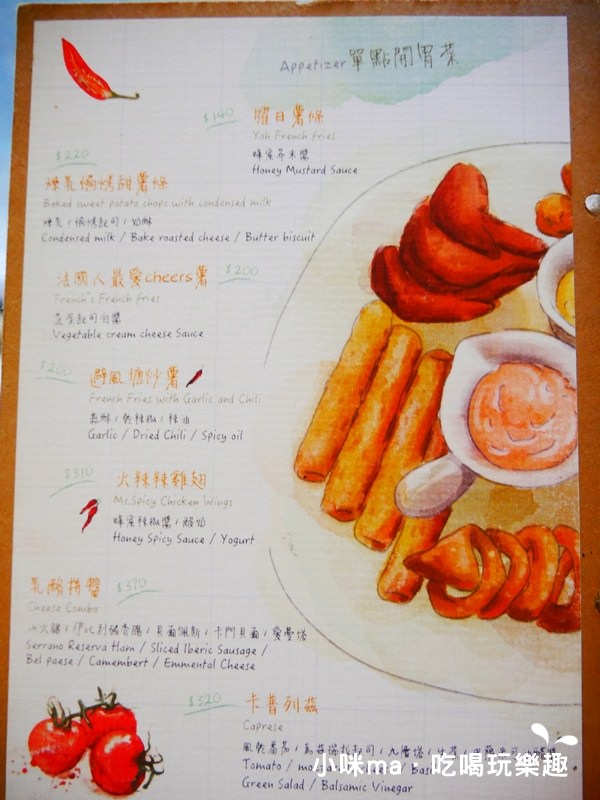 Appetizer 單點開胃菜
$140 曜日薯條
Yoh French fries
蜂蜜芥末醬
Honey Mustard Sauce
$220
煉乳焗烤甜薯條
Baked sweet potato chops with condensed milk
煉乳 / 焗烤起司 / 奶酥
Condensed milk / Bake roasted cheese / Butter biscuit
法國人最愛cheers薯 $200
French's French fries
蔬菜起司白醬
Vegetable cream cheese Sauce
$200 避風塘炒薯
French Fries with Garlic and Chili
蒜酥 / 乾辣椒 / 辣油
Garlic / Dried Chili / Spicy oil
$310 火辣辣雞翅
Mr.Spicy Chicken Wings
蜂蜜辣椒醬 / 酸奶
Honey Spicy Sauce / Yogurt
乳酪拼盤 $370
Cheese Combo
山火腿 / 伊比利豬香腸 / 貝爾佩斯 / 卡門貝爾 / 愛曼塔
Serrano Reserva Ham / Sliced Iberic Sausage /
Bel paese / Camembert / Emmental Cheese
$320 卡普列茲
Caprese
風乾番茄 / 馬茲瑞拉起司 / 九層塔 / 生菜 /
Tomato / mozz
Green Salad / Balsamic Vinegar
小咪ma，吃喝玩樂趣